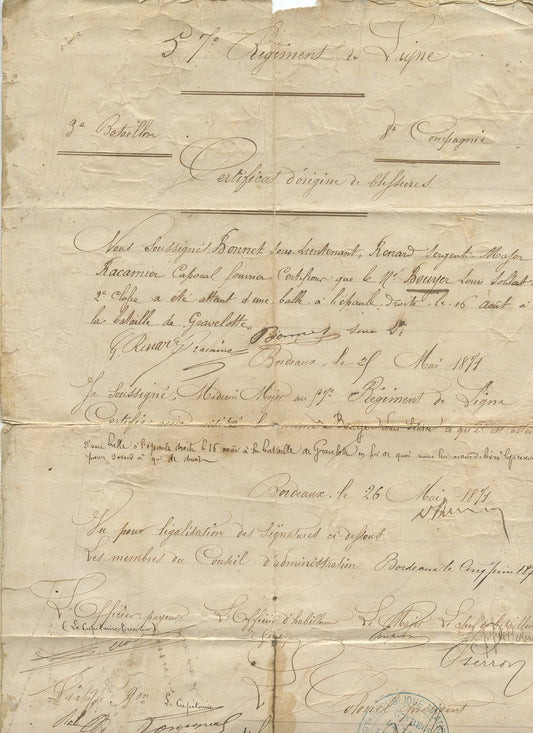 57e Régiment de Ligne
3e Bataillon 8e Compagnie
Certificat d'origine de blessures
Nous Soussignés Bonnet Sous Lieutenant, Renard Sergent Major
Racamier Caporal fourrier Certifions que le Né Bouyer Louis Soldat
2e Classe a été atteint d'une balle à l'épaule droite le 16 Août à
la bataille de Gravelotte
G Renard Racamier Bonnet Sous Lt
Bordeaux, le 25 Mai 1871
Je Soussigné, Médecin Major au 57e Régiment de Ligne
Certifie avoir visité le nommé Bouyer Louis
d'une balle à l'épaule droite le 16 août à la bataille de Gravelotte en foi de quoi nous lui avons délivré le présent
pour servir à qui de droit
Bordeaux, le 26 Mai 1871
Vu pour légalisation des signatures ci-dessous
Les membres du Conseil d'administration Bordeaux le cinq juin
L'Officier payeur L'Officier d'habillem Le Major Le Chef de bataillon
Pierron
Le Capitaine
Colonel président